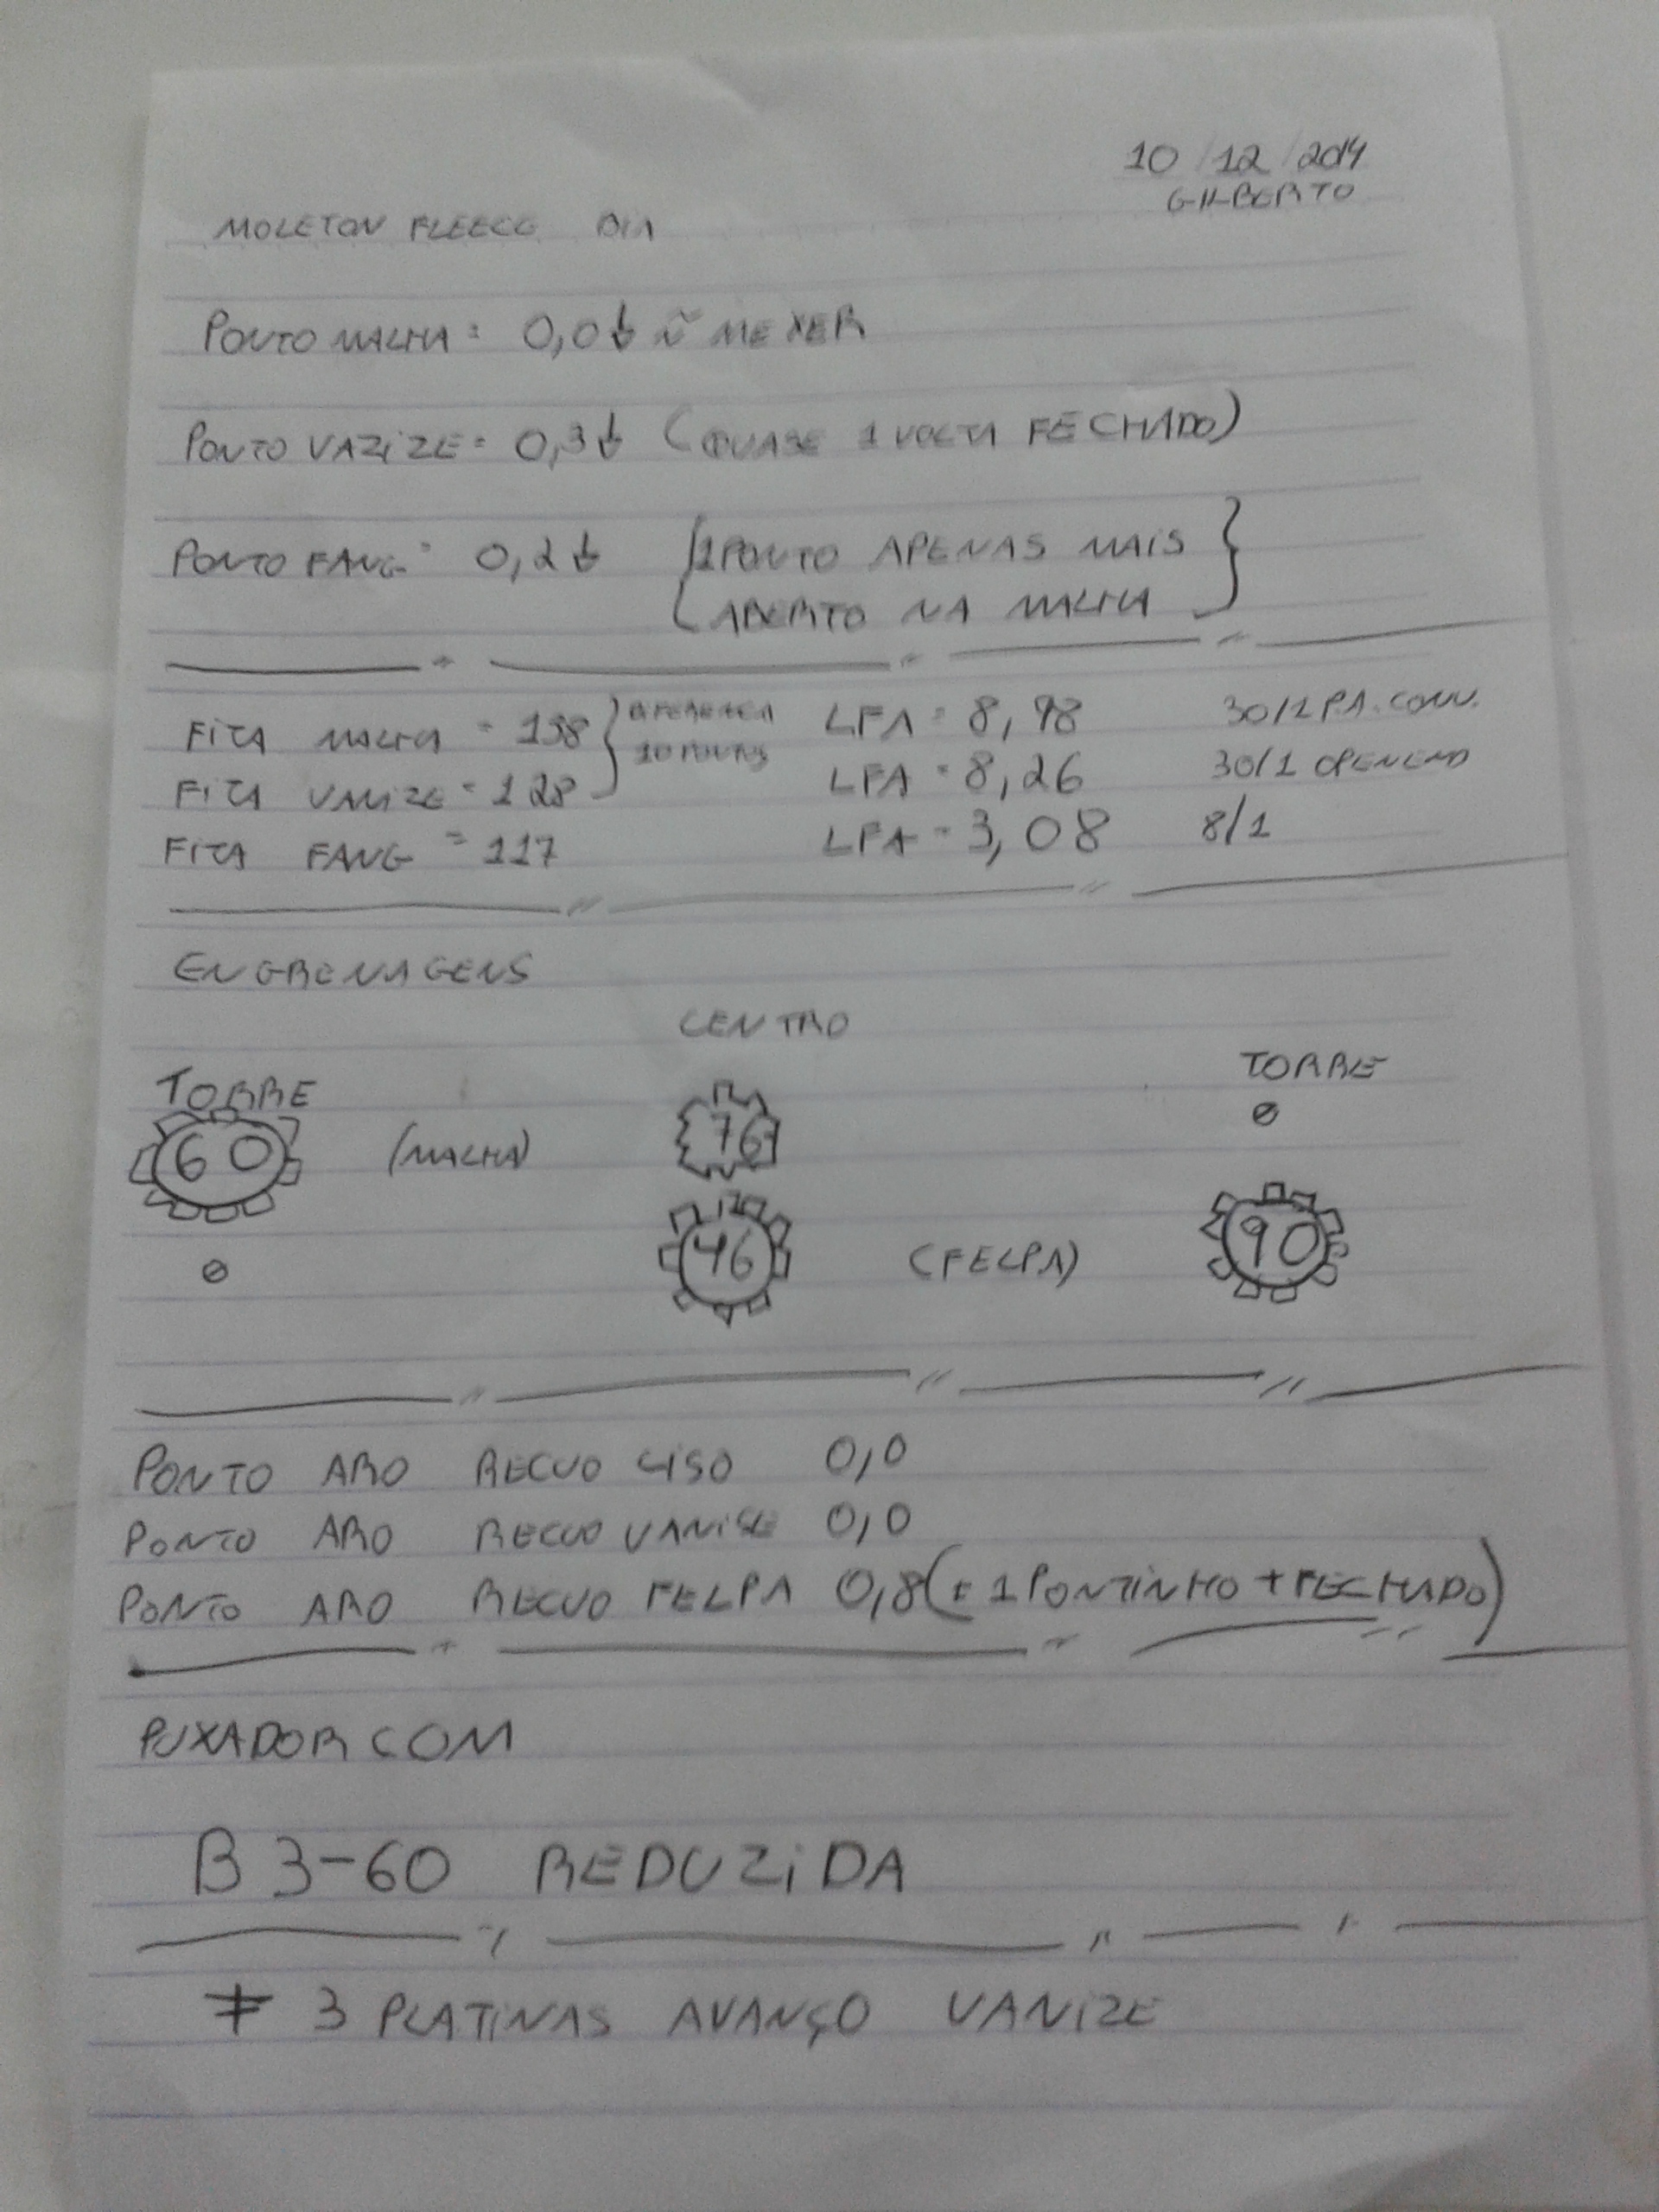 10/12/2014
GILBERTO
MOLETON FLEECE DIA
PONTO MALHA = 0,0 ↓ Ñ MEXER
PONTO VAZIZE = 0,3 ↓ (QUASE 1 VOLTA FECHADO)
PONTO FANG = 0,2 ↓ (1 PONTO APENAS MAIS
ABERTO NA MALHA)
FITA MALHA = 138 } DIFERENÇA LFA = 8,98 30/1 PA. CONV.
10 PONTOS
FITA VANIZE = 128 LFA = 8,26 30/1 OPENEND
FITA FANG = 117 LFA = 3,08 8/1
ENGRENAGENS
CENTRO
TORRE TORRE
60 (MALHA) 76 Ø
Ø 46 (FELPA) 90
PONTO ARO RECUO LISO 0,0
PONTO ARO RECUO VANISE 0,0
PONTO ARO RECUO FELPA 0,8 (= 1 PONTINHO + FECHADO)
PUXADOR COM
B 3-60 REDUZIDA
≠ 3 PLATINAS AVANÇO VANIZE